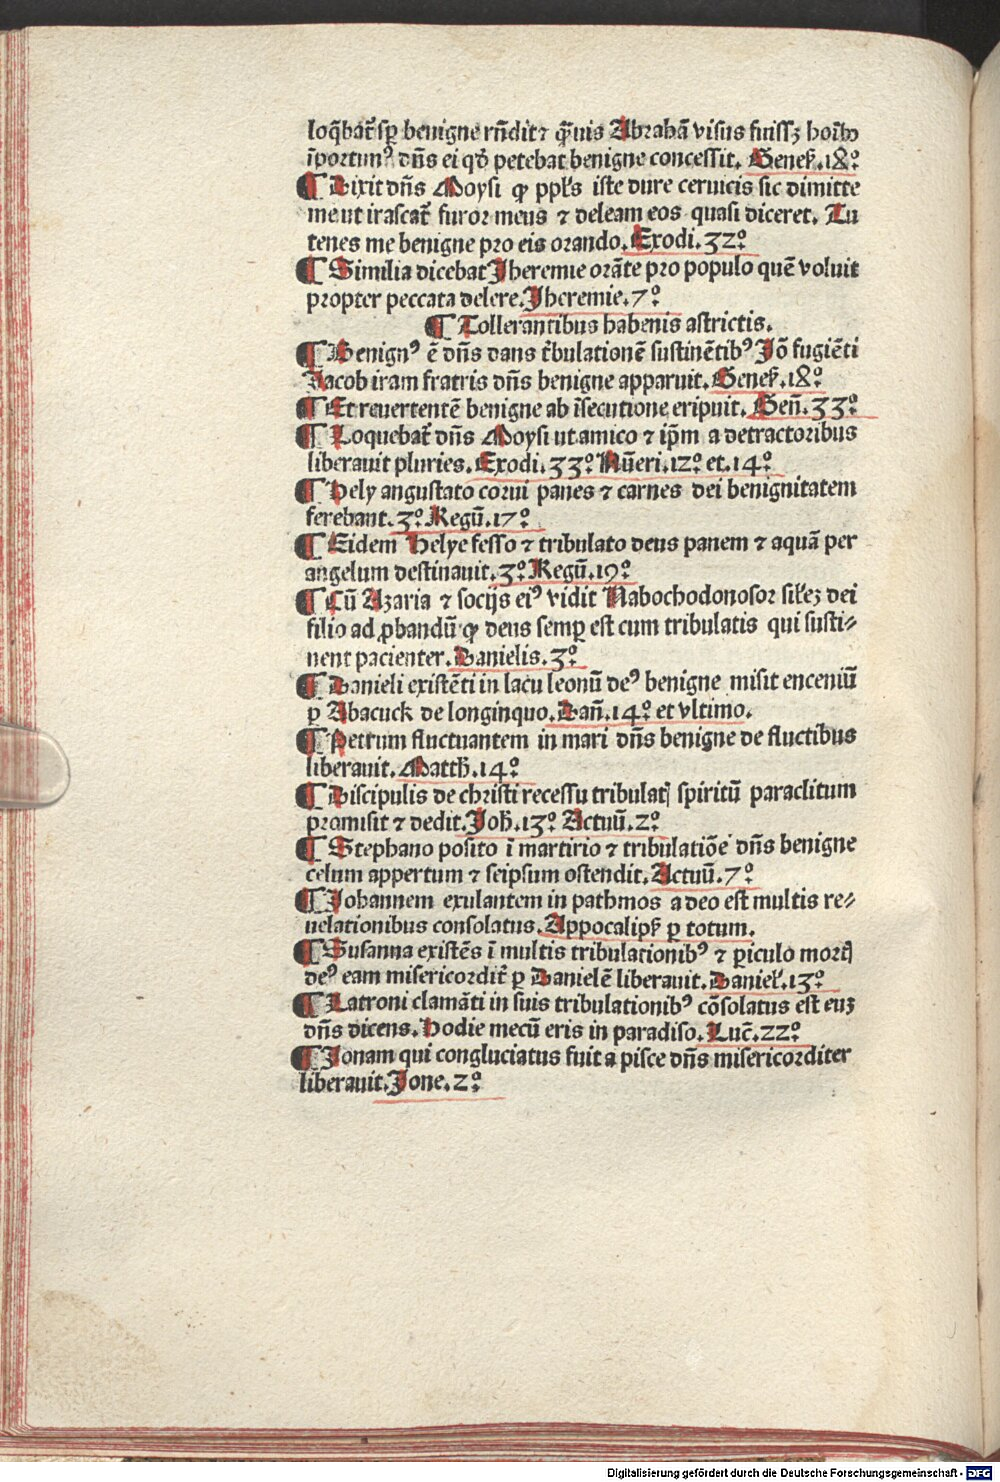 loq̄bat᷑ sp̄ benigne rn̄dit ⁊ q̄uis Abrahā visus fuissꝫ hoīb⁹
īportun⁹ dn̄s ei qđ petebat benigne concessit. Geneẜ.18º
¶ Dixit dn̄s Moysi ꝙ ppl̄s iste dure ceruicis sic dimitte
me ut irascat᷑ furor meus ⁊ deleam eos quasi diceret. Tu
tenes me benigne pro eis orando. Exodi.32º
¶ Similia dicebat Jheremie orāte pro populo quē voluit
propter peccata delere. Jheremie.7º
¶ Tollerantibus habenis astrictis.
¶ Benign⁹ ē dn̄s dans t̄bulationē sustinētib⁹ Jō fugiēti
Jacob iram fratris dn̄s benigne apparuit. Geneẜ.18º
¶ Et reuertentē benigne ab īsecutione eripuit. Gen̄.33º
¶ Loquebat᷑ dn̄s Moysi ut amico ⁊ ip̄m a detractoribus
liberauit pluries. Exodi.33º Nūeri.12º et.14º
¶ Hely angustato corui panes ⁊ carnes dei benignitatem
ferebant.3º Regū.17º
¶ Eidem Helye fesso ⁊ tribulato deus panem ⁊ aquā per
angelum destinauit.3º Regū.19º
¶ Cū Azaria ⁊ socijs ei⁹ vidit Nabochodonosor sil̄eꝫ dei
filio ad ꝓbandū ꝙ deus semꝑ est cum tribulatis qui susti⸗
nent pacienter. Danielis.3º
¶ Danieli existēti in lacu leonū de⁹ benigne misit enceniū
ꝑ Abacuck de longinquo. Dan̄.14º et vltimo.
¶ Petrum fluctuantem in mari dn̄s benigne de fluctibus
liberauit. Matth̄.14º
¶ Discipulis de christi recessu tribulatꝭ spiritū paraclitum
promisit ⁊ dedit. Joh̄.13º Actuū.2º
¶ Stephano posito ī martirio ⁊ tribulatiōe dn̄s benigne
celum appertum ⁊ seipsum ostendit. Actuū.7º
¶ Johannem exulantem in pathmos a deo est multis re⸗
uelationibus consolatus. Appocalipẜ ꝑ totum.
¶ Susanna existēs ī multis tribulationib⁹ ⁊ ꝑiculo mortꝭ
de⁹ eam misericordit᷑ ꝑ Danielē liberauit. Daniel̄.13º
¶ Latroni clamāti in suis tribulationib⁹ cōsolatus est euꝫ
dn̄s dicens. Hodie mecū eris in paradiso. Luc̄.22º
¶ Jonam qui congluciatus fuit a pisce dn̄s misericorditer
liberauit. Jone.2º
Digitalisierung gefördert durch die Deutsche Forschungsgemeinschaft - DFG